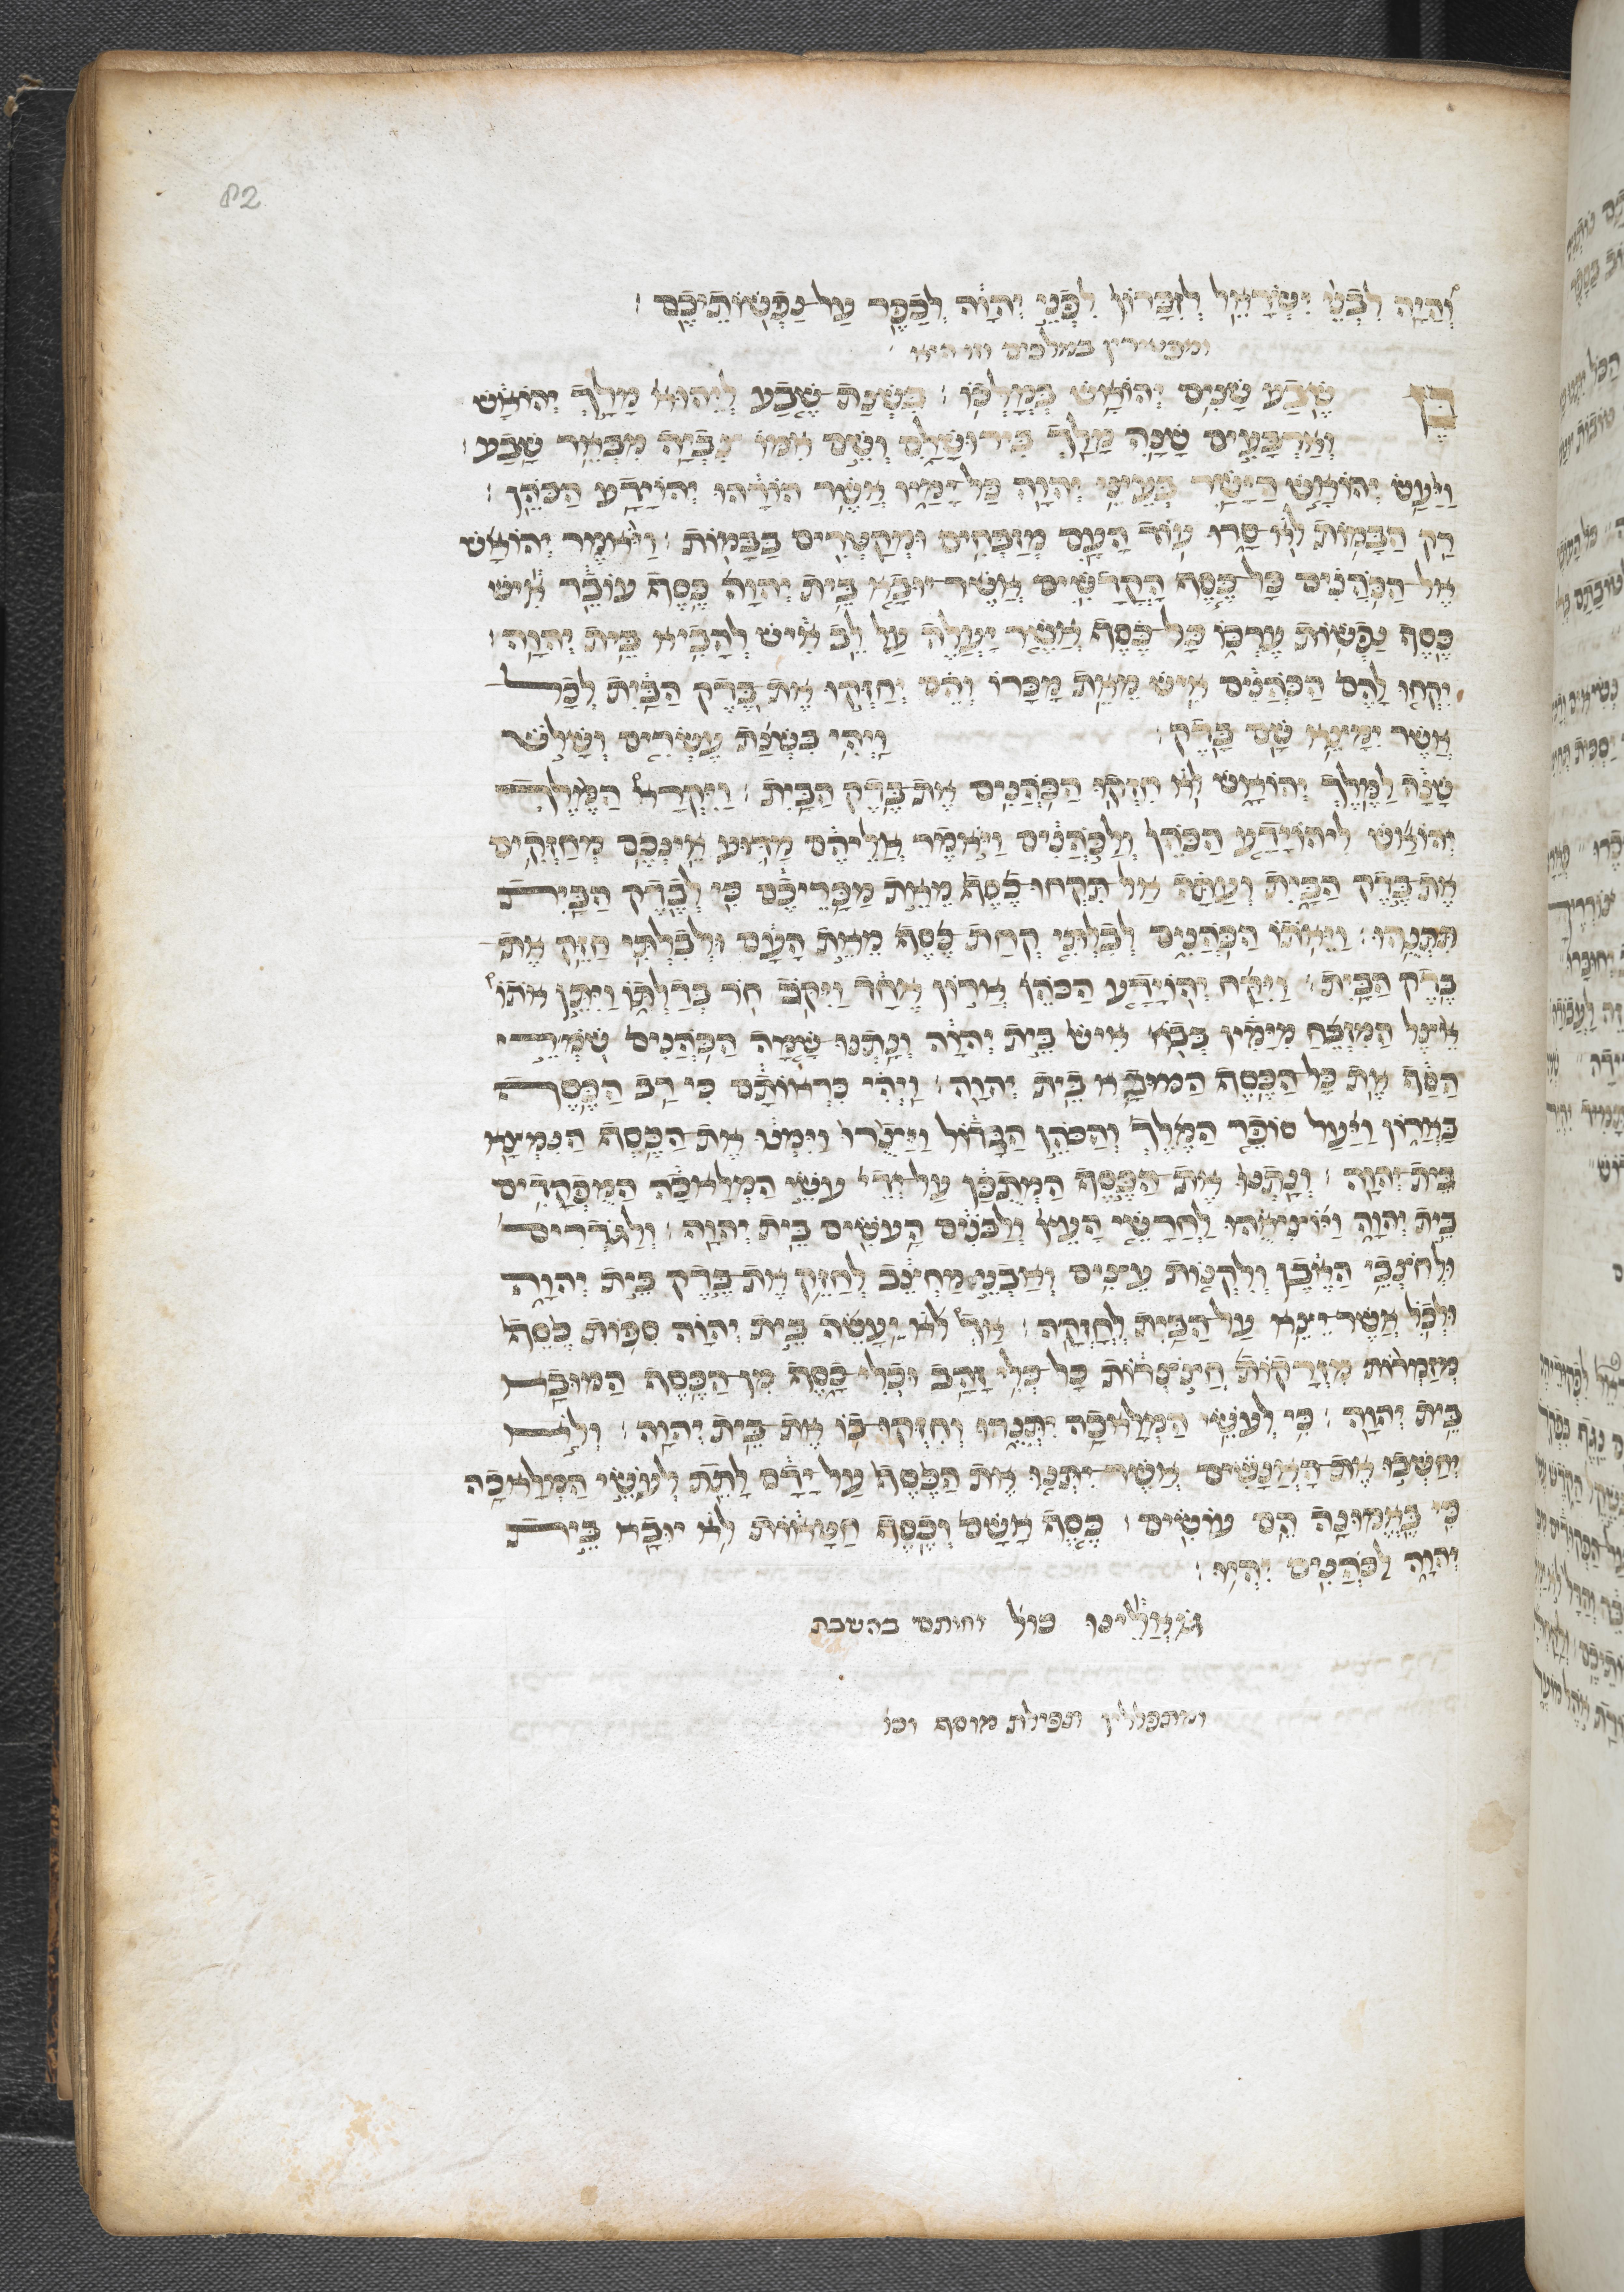 82
וְהָיָה לִבְנֵי יִשְׂרָאֵל לְזִכָּרוֹן לִפְנֵי יְהוָה לְכַפֵּר עַל נַפְשׁוֹתֵיכֶם׃
ומפטירין במלכים
בֶּן שֶׁבַע שָׁנִים יְהוֹאָשׁ בְּמָלְכוֹ׃ בִּשְׁנַת שֶׁבַע לְיֵהוּא מָלַךְ יְהוֹאָשׁ
וְאַרְבָּעִים שָׁנָה מָלַךְ בִּירוּשָׁלִָם וְשֵׁם אִמּוֹ צִבְיָה מִבְּאֵר שָׁבַע׃
וַיַּעַשׂ יְהוֹאָשׁ הַיָּשָׁר בְּעֵינֵי יְהוָה כָּל יָמָיו אֲשֶׁר הוֹרָהוּ יְהוֹיָדָע הַכֹּהֵן׃
רַק הַבָּמוֹת לֹא סָרוּ עוֹד הָעָם מְזַבְּחִים וּמְקַטְּרִים בַּבָּמוֹת׃ וַיֹּאמֶר יְהוֹאָשׁ
אֶל הַכֹּהֲנִים כָּל כֶּסֶף הַקֳּדָשִׁים אֲשֶׁר יוּבָא בֵית יְהוָה כֶּסֶף עוֹבֵר אִישׁ
כֶּסֶף נַפְשׁוֹת עֶרְכּוֹ כָּל כֶּסֶף אֲשֶׁר יַעֲלֶה עַל לֶב אִישׁ לְהָבִיא בֵּית יְהוָה׃
יִקְחוּ לָהֶם הַכֹּהֲנִים אִישׁ מֵאֵת מַכָּרוֹ וְהֵם יְחַזְּקוּ אֶת בֶּדֶק הַבַּיִת לְכֹל
אֲשֶׁר יִמָּצֵא שָׁם בָּדֶק׃ וַיְהִי בִּשְׁנַת עֶשְׂרִים וְשָׁלֹשׁ
שָׁנָה לַמֶּלֶךְ יְהוֹאָשׁ לֹא חִזְּקוּ הַכֹּהֲנִים אֶת בֶּדֶק הַבָּיִת׃ וַיִּקְרָא הַמֶּלֶךְ
יְהוֹאָשׁ לִיהוֹיָדָע הַכֹּהֵן וְלַכֹּהֲנִים וַיֹּאמֶר אֲלֵיהֶם מַדּוּעַ אֵינְכֶם מְחַזְּקִים
אֶת בֶּדֶק הַבָּיִת וְעַתָּה אַל תִּקְחוּ כֶסֶף מֵאֵת מַכָּרֵיכֶם כִּי לְבֶדֶק הַבַּיִת
תִּתְּנֻהוּ׃ וַיֵּאֹתוּ הַכֹּהֲנִים לְבִלְתִּי קְחַת כֶּסֶף מֵאֵת הָעָם וּלְבִלְתִּי חַזֵּק אֶת
בֶּדֶק הַבָּיִת׃ וַיִּקַּח יְהוֹיָדָע הַכֹּהֵן אֲרוֹן אֶחָד וַיִּקֹּב חֹר בְּדַלְתּוֹ וַיִּתֵּן אֹתוֹ
אֵצֶל הַמִּזְבֵּחַ מִיָּמִין בְּבוֹא אִישׁ בֵּית יְהוָה וְנָתְנוּ שָׁמָּה הַכֹּהֲנִים שֹׁמְרֵי
הַסַּף אֶת כָּל הַכֶּסֶף הַמּוּבָא בֵית יְהוָה׃ וַיְהִי כִּרְאוֹתָם כִּי רַב הַכֶּסֶף
בָּאָרוֹן וַיַּעַל סוֹפֵר הַמֶּלֶךְ וְהַכֹּהֵן הַגָּדוֹל וַיָּצֻרוּ וַיִּמְנוּ אֶת הַכֶּסֶף הַנִּמְצָא
בֵית יְהוָה׃ וְנָתְנוּ אֶת הַכֶּסֶף הַמְתֻכָּן עַל יְדֵי עֹשֵׂי הַמְּלָאכָה הַמֻּפְקָדִים
בֵּית יְהוָה וַיּוֹצִיאֻהוּ לְחָרָשֵׁי הָעֵץ וְלַבֹּנִים הָעֹשִׂים בֵּית יְהוָה׃ וְלַגֹּדְרִים
וּלְחֹצְבֵי הָאֶבֶן וְלִקְנוֹת עֵצִים וְאַבְנֵי מַחְצֵב לְחַזֵּק אֶת בֶּדֶק בֵּית יְהוָה
וּלְכֹל אֲשֶׁר יֵצֵא עַל הַבַּיִת לְחָזְקָה׃ אַךְ לֹא יֵעָשֶׂה בֵּית יְהוָה סִפּוֹת כֶּסֶף
מְזַמְּרוֹת מִזְרָקוֹת חֲצֹצְרוֹת כָּל כְּלִי זָהָב וּכְלִי כָסֶף מִן הַכֶּסֶף הַמּוּבָא
בֵית יְהוָה׃ כִּי לְעֹשֵׂי הַמְּלָאכָה יִתְּנֻהוּ וְחִזְּקוּ בוֹ אֶת בֵּית יְהוָה׃ וְלֹא
יְחַשְּׁבוּ אֶת הָאֲנָשִׁים אֲשֶׁר יִתְּנוּ אֶת הַכֶּסֶף עַל יָדָם לָתֵת לְעֹשֵׂי הַמְּלָאכָה
כִּי בֶאֱמוּנָה הֵם עֹשִׂים׃ כֶּסֶף אָשָׁם וְכֶסֶף חַטָּאוֹת לֹא יוּבָא בֵּית
יְהוָה לַכֹּהֲנִים יִהְיוּ׃
גֹּאֲלֵינוּ כול׳ וחותם בהשבת
ומתפללין תפילת מוסף וכו׳